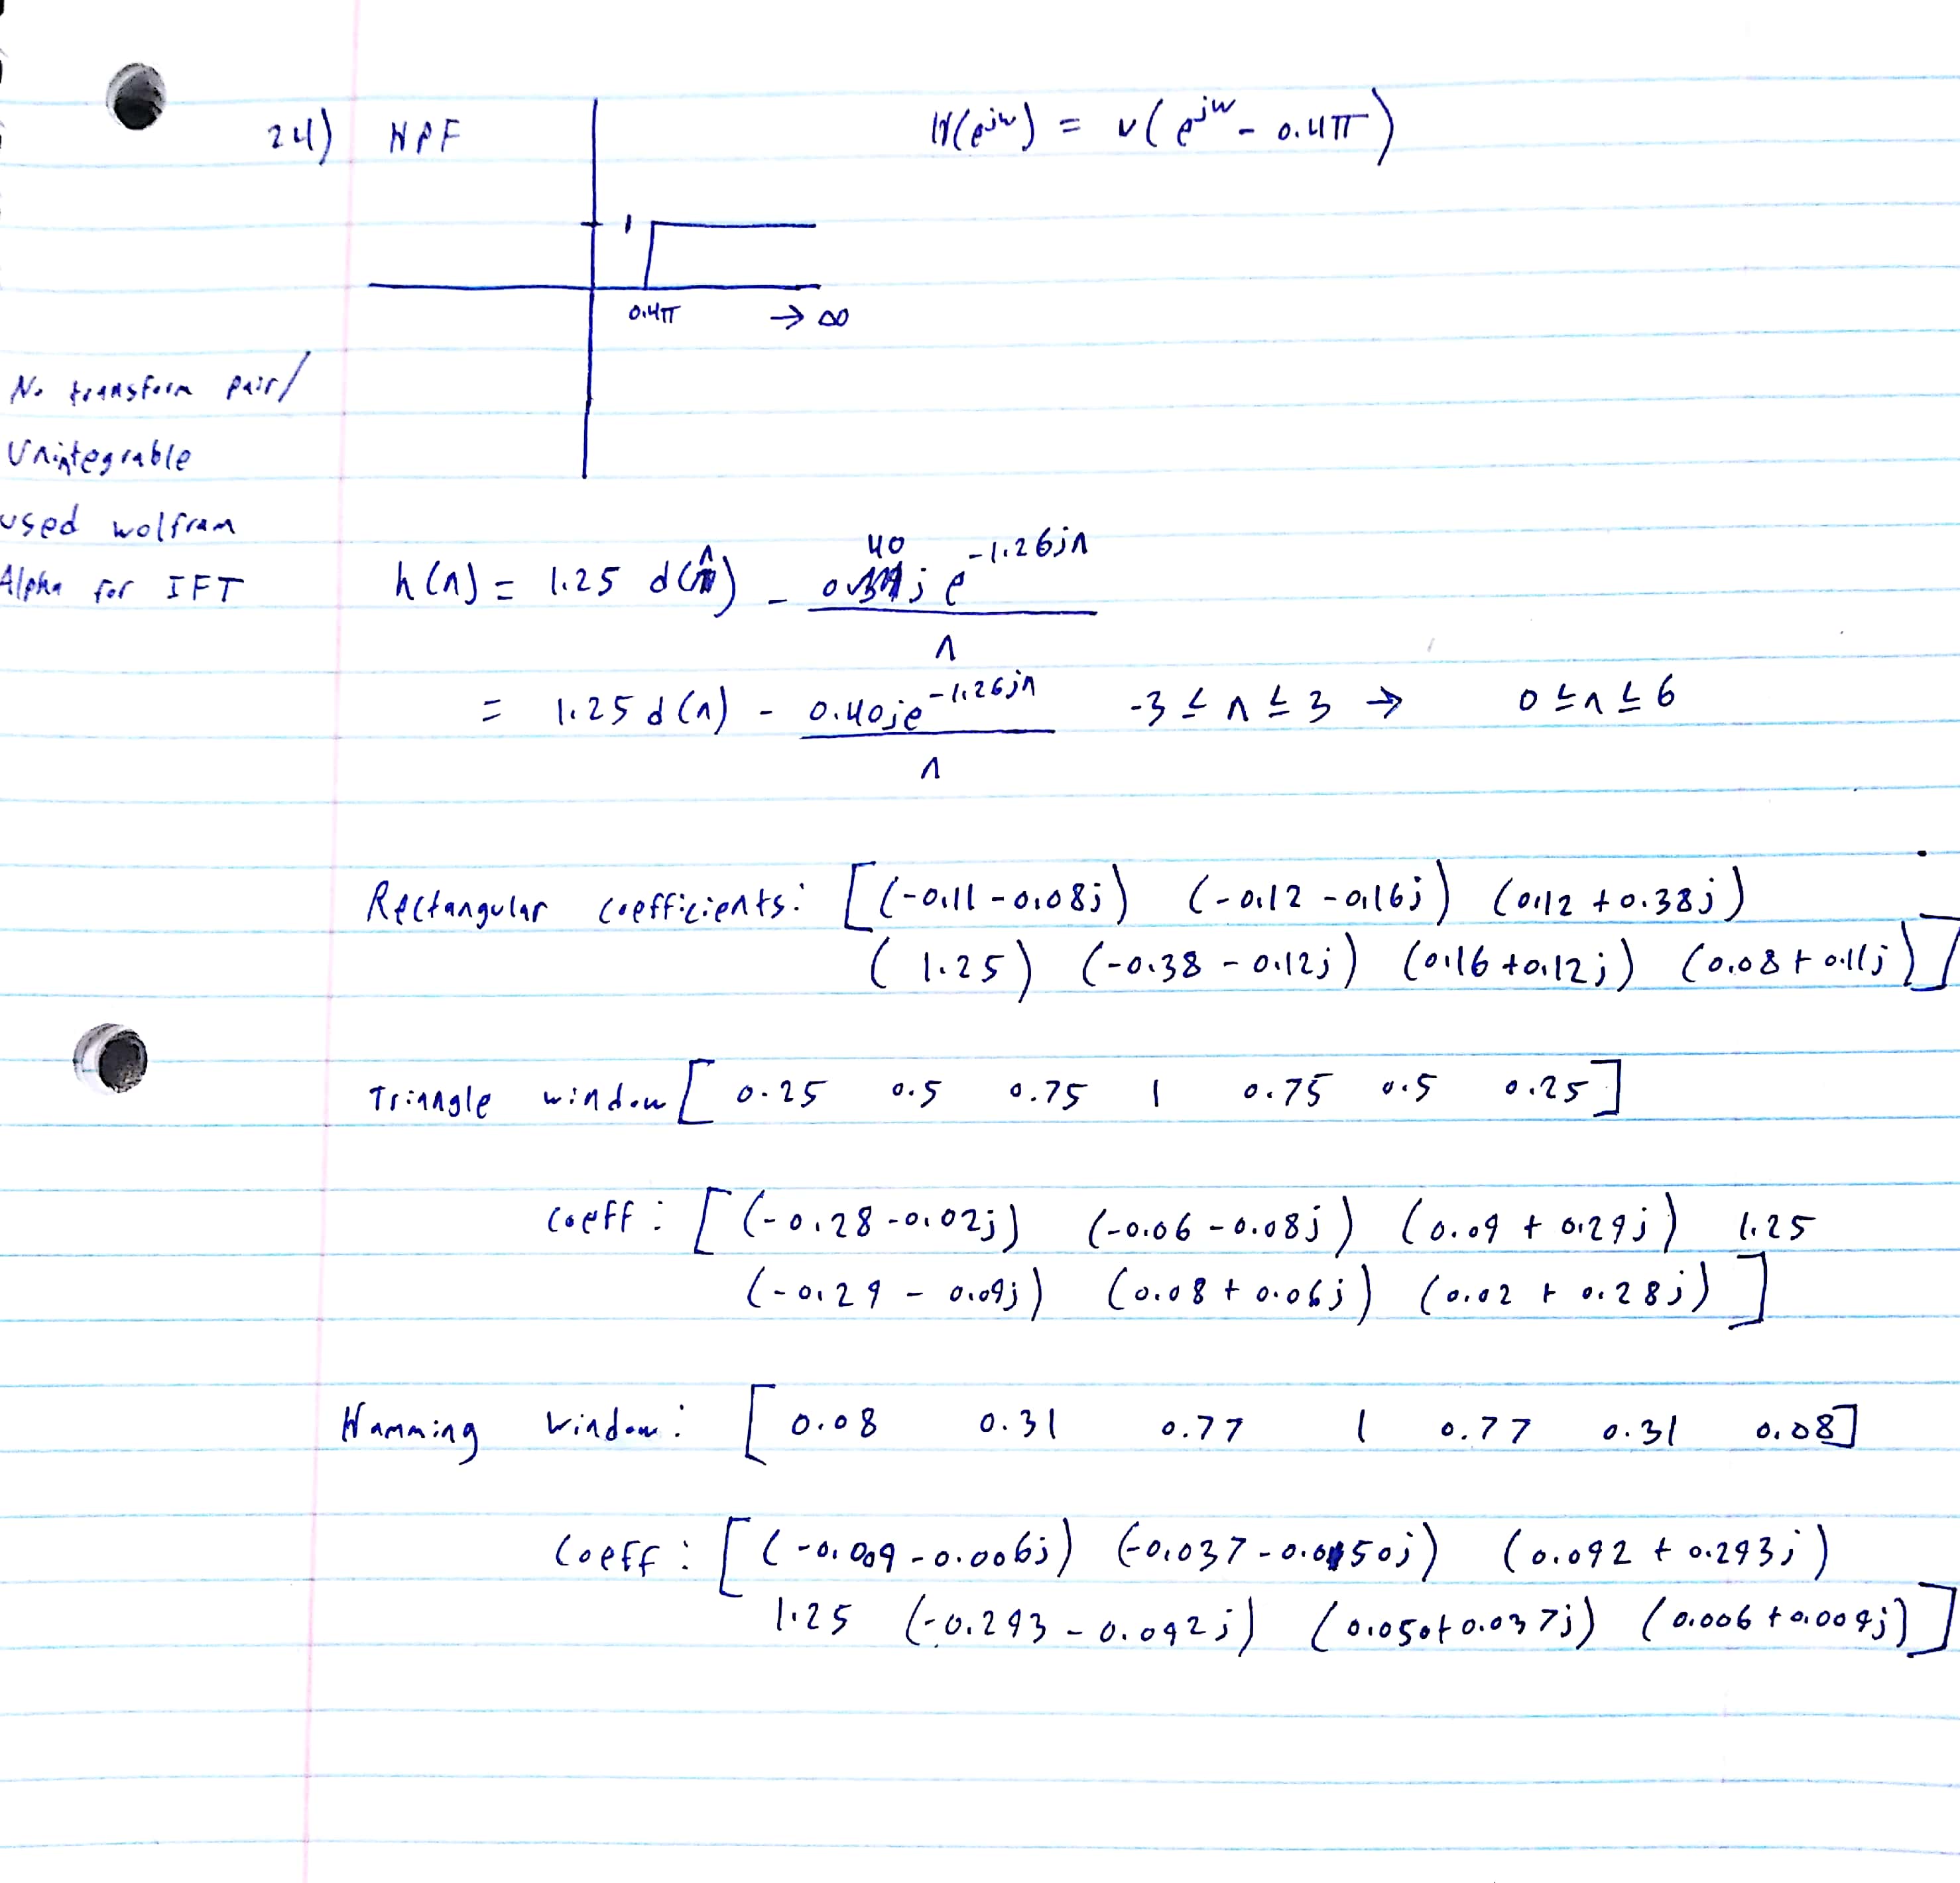 24) HPF H(e^jw) = u(e^jw - 0.4π)
1
0.4π → ∞
No transform pair/
Unintegrable
used wolfram
Alpha for IFT
h(n) = 1.25 d(n) - 0.40 j e^-1.26jn / n
= 1.25 d(n) - 0.40je^-1.26jn / n -3 ≤ n ≤ 3 → 0 ≤ n ≤ 6
Rectangular coefficients: [(-0.11 -0.08j) (-0.12 -0.16j) (0.12 +0.38j)
(1.25) (-0.38 - 0.12j) (0.16 +0.12j) (0.08 + 0.11j)]
Triangle window [0.25 0.5 0.75 1 0.75 0.5 0.25]
coeff: [(-0.28 -0.02j) (-0.06 -0.08j) (0.09 + 0.29j) 1.25
(-0.29 - 0.09j) (0.08 + 0.06j) (0.02 + 0.28j)]
Hamming window: [0.08 0.31 0.77 1 0.77 0.31 0.08]
Coeff: [(-0.009 -0.006j) (-0.037 -0.050j) (0.092 + 0.293j)
1.25 (-0.293 - 0.092j) (0.050+0.037j) (0.006 +0.009j)]